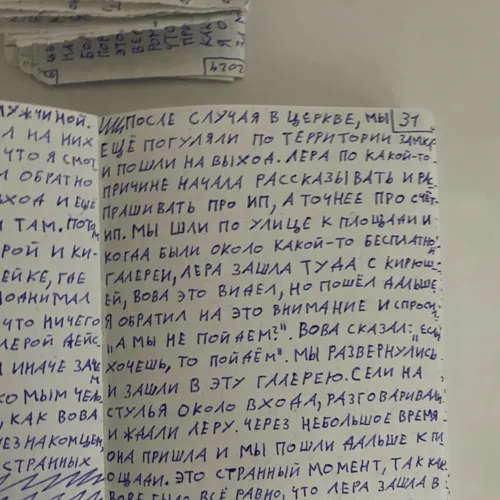 4202
31
МУЖЧИНОЙ.
Л НА НИХ
ЧТО Я СМОГ
И ОБРАТНО
ВХОД И ЕЩЁ
И ТАМ. ПОТОМ
РОЙ И КИ-
ЕЙКЕ, ГДЕ
ПОДНИМАЛ
ЧТО НИЧЕГО
ЛЕРОЙ ДЕЙС
И ИНАЧЕ ЗАЧЕМ
КОМЫМ ЧЕЛ
, КАК ВОВА
СТРАННЫХ
ПОСЛЕ СЛУЧАЯ В ЦЕРКВЕ, МЫ
ЕЩЁ ПОГУЛЯЛИ ПО ТЕРРИТОРИИ ЗАМКА
И ПОШЛИ НА ВЫХОД. ЛЕРА ПО КАКОЙ-ТО
ПРИЧИНЕ НАЧАЛА РАССКАЗЫВАТЬ И РАС
ПРАШИВАТЬ ПРО ИП, А ТОЧНЕЕ ПРО СЧЁТ
ИП. МЫ ШЛИ ПО УЛИЦЕ К ПЛОЩАДИ И
КОГДА БЫЛИ ОКОЛО КАКОЙ-ТО БЕСПЛАТНОЙ
ГАЛЕРЕИ, ЛЕРА ЗАШЛА ТУДА С КИРЮШ-
ЕЙ, ВОВА ЭТО ВИДЕЛ, НО ПОШЁЛ ДАЛЬШЕ
Я ОБРАТИЛ НА ЭТО ВНИМАНИЕ И СПРОСИЛ
"А МЫ НЕ ПОЙДЕМ?". ВОВА СКАЗАЛ: "ЕСЛИ
ХОЧЕШЬ, ТО ПОЙДЁМ". МЫ РАЗВЕРНУЛИСЬ
И ЗАШЛИ В ЭТУ ГАЛЕРЕЮ. СЕЛИ НА
СТУЛЬЯ ОКОЛО ВХОДА, РАЗГОВАРИВАЛИ
И ЖДАЛИ ЛЕРУ. ЧЕРЕЗ НЕБОЛЬШОЕ ВРЕМЯ
ОНА ПРИШЛА И МЫ ПОШЛИ ДАЛЬШЕ К ПЛ
ОЩАДИ. ЭТО СТРАННЫЙ МОМЕНТ, ТАК КАК
ВОВЕ БЫЛО ВСЁ РАВНО, ЧТО ЛЕРА ЗАШЛА В